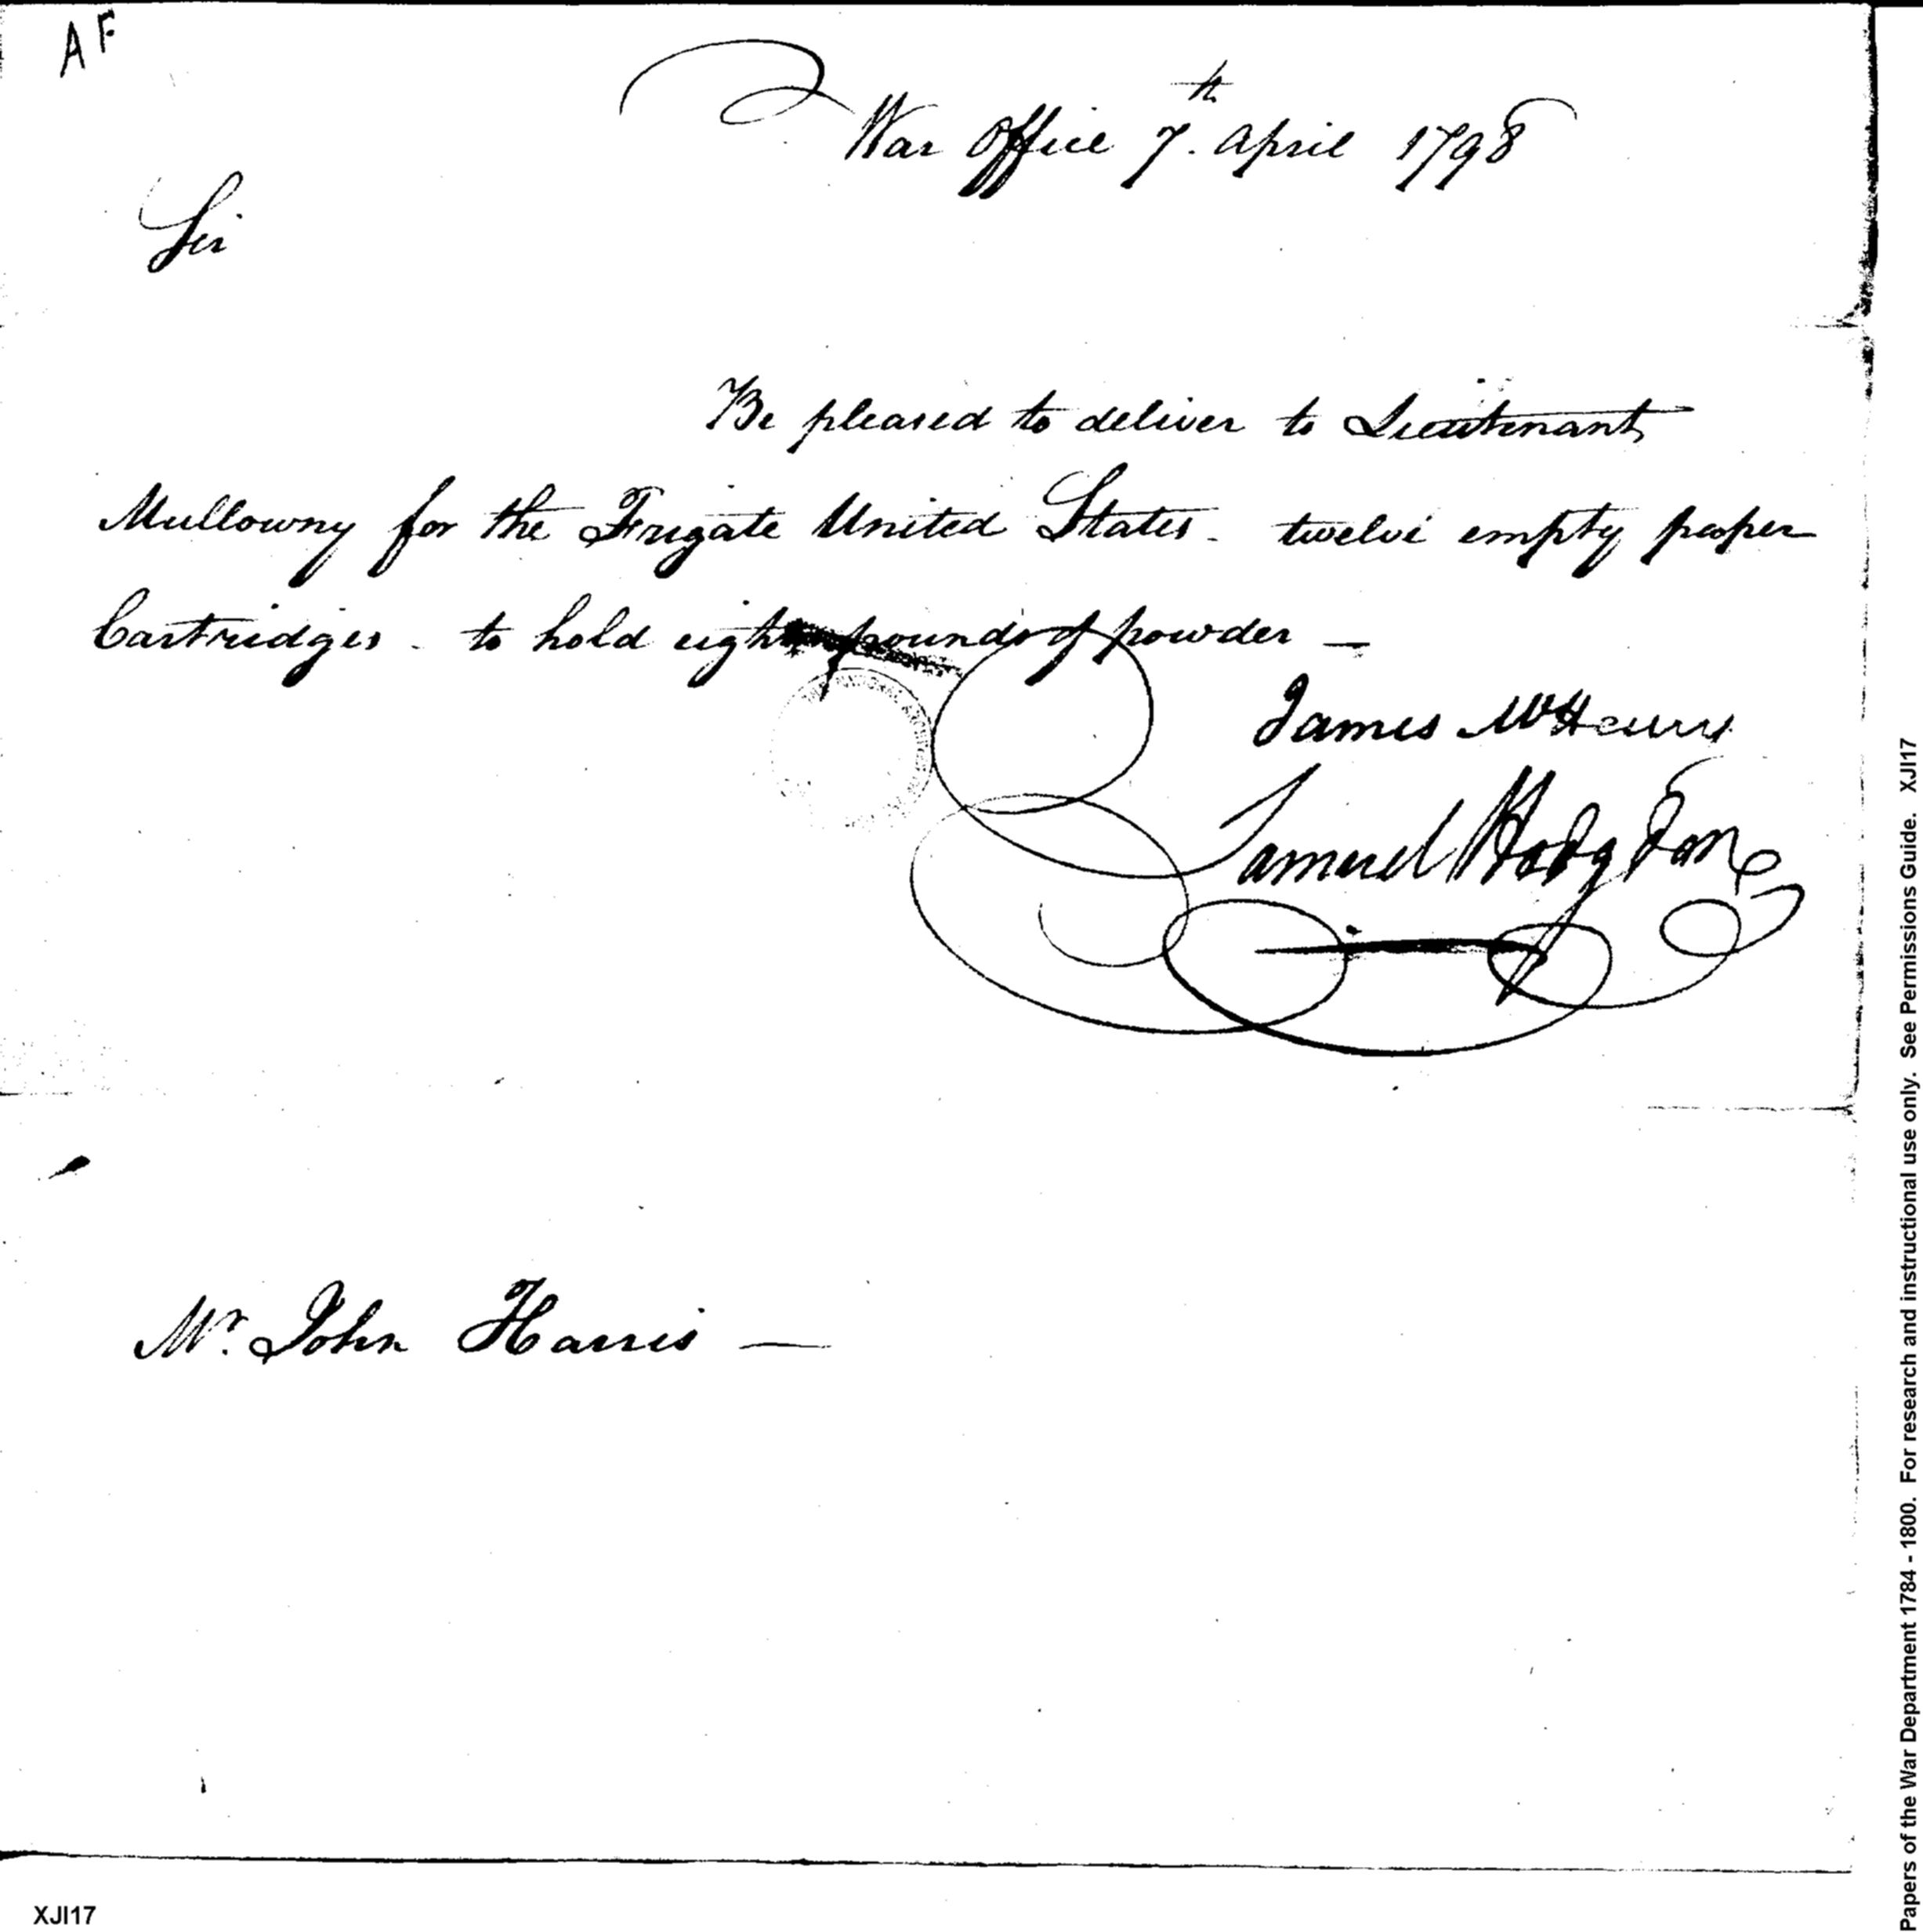 AF
War Office 7th. April 1798
Sir
Be pleased to deliver to Lieutenant
Mullowny for the Frigate United States - twelve empty paper
Cartridges - to hold eight pounds of powder —
James McHenry
Samuel Hodgdon
Mr. John Harris —
XJI17
Papers of the War Department 1784 - 1800. For research and instructional use only. See Permissions Guide. XJI17